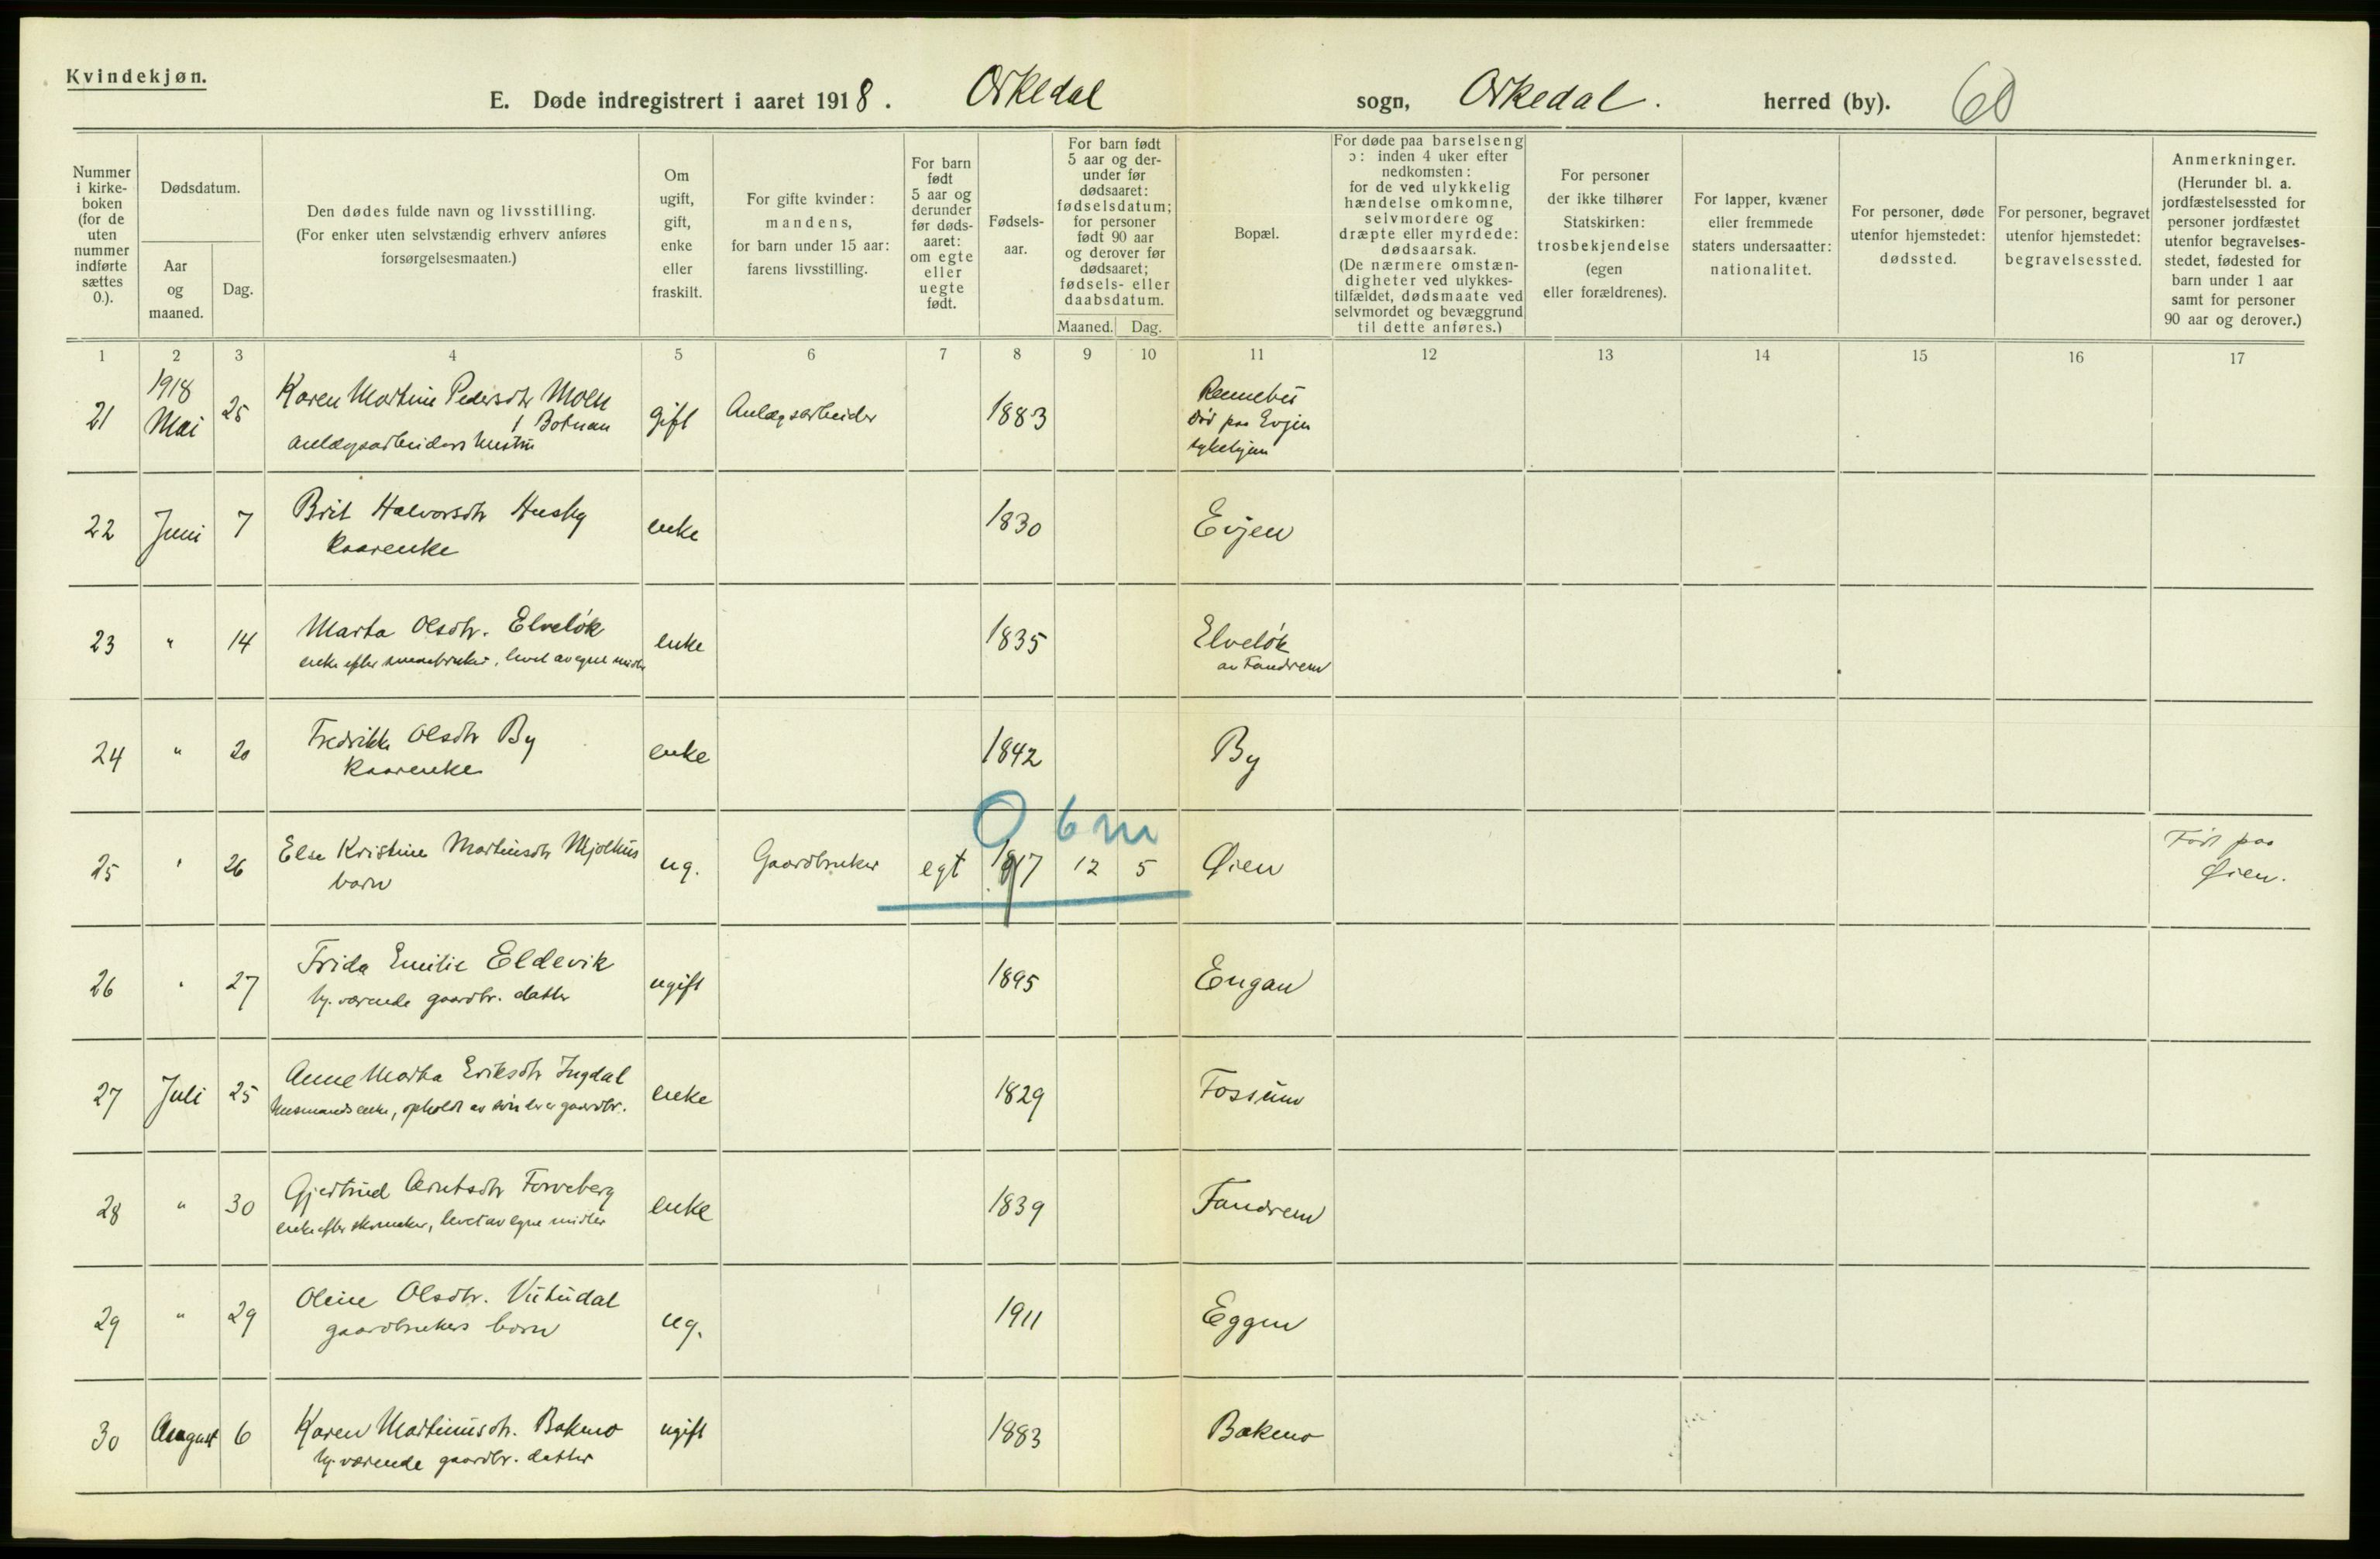 Kvindekjøn.
E. Døde indregistrert i aaret 1918. Orkedal sogn, Orkedal. herred (by). 60
Nummer i kirkeboken (for de uten nummer indførte sættes 0.).
Dødsdatum.
Aar og maaned.
Dag.
Den dødes fulde navn og livsstilling.
(For enker uten selvstændig erhverv anføres
forsørgelsesmaaten.)
Om ugift, gift, enke eller fraskilt.
For gifte kvinder:
mandens,
for barn under 15 aar:
farens livsstilling.
For barn født 5 aar og derunder før dødsaaret: om egte eller uegte født.
Fødselsaar.
For barn født 5 aar og derunder før dødsaaret: fødselsdatum; for personer født 90 aar og derover før dødsaaret; fødsels- eller daabsdatum.
Maaned. Dag.
Bopæl.
For døde paa barselseng
ɔ: inden 4 uker efter
nedkomsten:
for de ved ulykkelig
hændelse omkomne,
selvmordere og
dræpte eller myrdede:
dødsaarsak.
(De nærmere omstæn-
digheter ved ulykkes-
tilfældet, dødsmaate ved
selvmordet og bevæggrund
til dette anføres.)
For personer
der ikke tilhører
Statskirken:
trosbekjendelse
(egen
eller forældrenes).
For lapper, kvæner
eller fremmede
staters undersaatter:
nationalitet.
For personer, døde
utenfor hjemstedet:
dødssted.
For personer, begravet
utenfor hjemstedet:
begravelsessted.
Anmerkninger.
(Herunder bl. a.
jordfæstelsessted for
personer jordfæstet
utenfor begravelses-
stedet, fødested for
barn under 1 aar
samt for personer
90 aar og derover.)
1 2 3 4 5 6 7 8 9 10 11 12 13 14 15 16 17
21 1918 Mai 25 Karen Martine Pedersdtr Moen
Botnan
anlægsarbeiders hustru gift Anlægsarbeider 1883 Rennebu
død paa Evjen
sykehjem
22 Juni 7 Brit Halvorsdtr Husby
kaarenke enke 1830 Evjen
23 " 14 Marta Olsdtr. Elveløk
enke efter , levet av egne midler enke 1835 Elveløk
av Fandrem
24 " 20 Fredrikke Olsdtr By
kaarenke enke 1842 By
0 6 m
25 " 26 Else Kristine Martinsdtr Mjolhus
barn ug. Gaardbruker egt 1917 12 5 Øien Født paa
Øien.
26 " 27 Frida Emilie Eldevik
hj. værende gaardbr. datter ugift 1895 Engan
27 Juli 25 Anne Marta Eriksdtr Ingdal
husmandsenke, opholdt av gaardbr. enke 1829 Fossum
28 " 30 Gjertrud Arntsdtr Forveberg
enke efter skomaker, levet av egne midler enke 1839 Fandrem
29 " 29 Oline Olsdtr. Vutudal
gaardbrukers barn ug. 1911 Eggen
30 August 6 Karen Martinusdtr. Bakmo
hj. værende gaardbr. datter ugift 1883 Bakmo